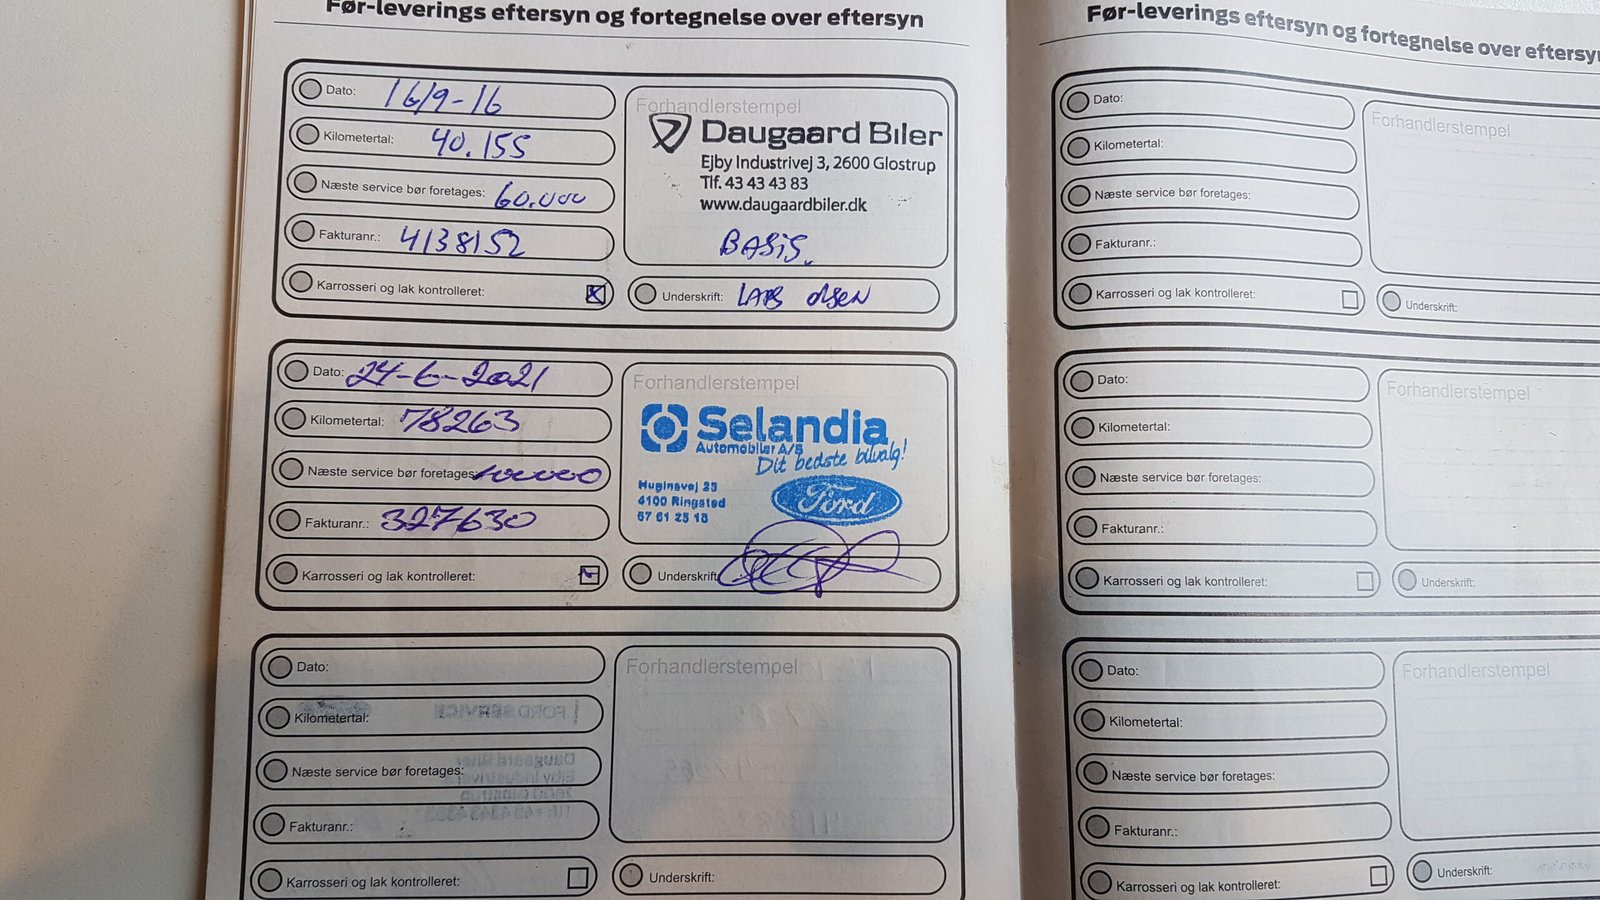 Før-leverings eftersyn og fortegnelse over eftersyn
Dato: 16/9-16
Kilometertal: 40.155
Næste service bør foretages: 60.000
Fakturanr.: 4138152
Karrosseri og lak kontrolleret: X
Forhandlerstempel
Daugaard Biler
Ejby Industrivej 3, 2600 Glostrup
Tlf. 43 43 43 83
www.daugaardbiler.dk
BASIS.
Underskrift: LARS OLSEN
Dato: 24-6-2021
Kilometertal: 78263
Næste service bør foretages: 100000
Fakturanr.: 327630
Karrosseri og lak kontrolleret:
Forhandlerstempel
Selandia
Automobiler A/S
Dit bedste bilvalg!
Huginsvej 25
4100 Ringsted
57 61 25 18
Ford
Underskrift:
Dato:
Kilometertal:
Næste service bør foretages:
Fakturanr.:
Karrosseri og lak kontrolleret:
Forhandlerstempel
Underskrift:
FORD SERVICE
Daugaard Biler
Før-leverings eftersyn og fortegnelse over eftersyn
Dato:
Kilometertal:
Næste service bør foretages:
Fakturanr.:
Karrosseri og lak kontrolleret:
Forhandlerstempel
Underskrift:
Dato:
Kilometertal:
Næste service bør foretages:
Fakturanr.:
Karrosseri og lak kontrolleret:
Forhandlerstempel
Underskrift:
Dato:
Kilometertal:
Næste service bør foretages:
Fakturanr.:
Karrosseri og lak kontrolleret:
Forhandlerstempel
Underskrift: